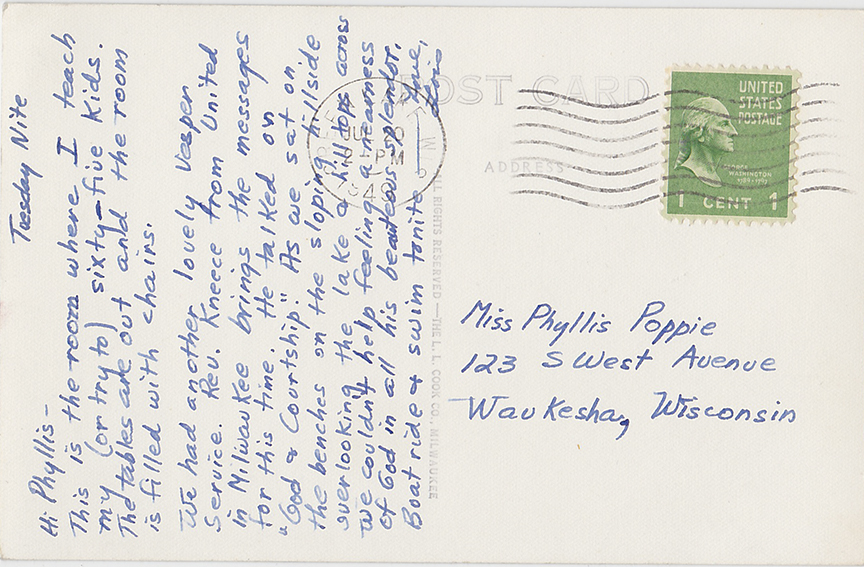 Tuesday Nite
Hi Phyllis-
This is the room where I teach
my (or try to) sixty-five kids.
The tables are out and the room
is filled with chairs.
We had another lovely Vesper
Service. Rev. Kneece from United
in Milwaukee brings the messages
for this time. He talked on
"God & Courtship". As we sat on
the benches on the sloping hillside
overlooking the lake & hilltops across
we couldn't help feeling a nearness
of God in all his beauteous splendor.
Boatride & swim tonite
POST CARD
ADDRESS
ALL RIGHTS RESERVED — THE L. L. COOK CO., MILWAUKEE
GREEN
PM
UNITED
STATES
POSTAGE
GEORGE
WASHINGTON
1789-1797
1 CENT 1
Miss Phyllis Poppie
123 S West Avenue
Waukesha, Wisconsin